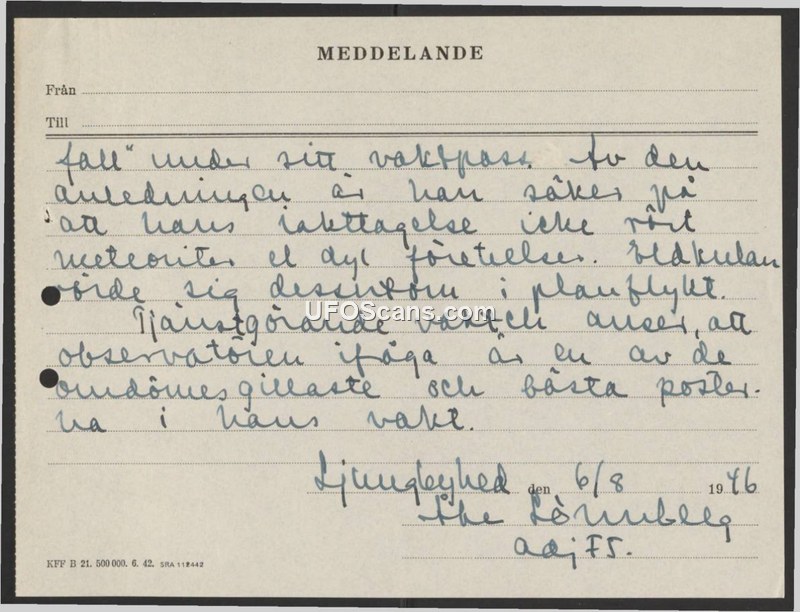 MEDDELANDE
Från
Till
fall" under sitt vaktpass. Av den
anledningen är han säker på
att hans iakttagelse icke rört
meteoriter el dyl företeelser. Eldkulan
rörde sig dessutom i planflykt.
UFOScans.com
Tjänstgörande vaktch anser, att
observatören ifråga är en av de
omdömesgillaste och bästa poster-
na i hans vakt.
Ljungbyhed den 6/8 1946
Åke
adj F5.
KFF B 21. 500 000. 6. 42. SRA 118442